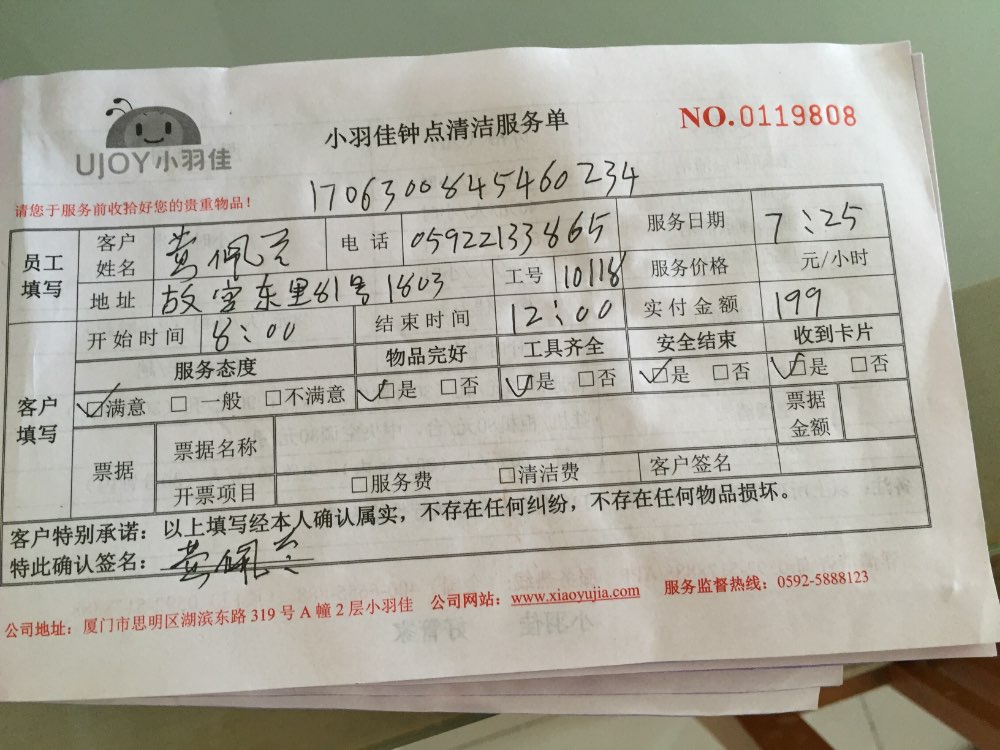 UJOY小羽佳
小羽佳钟点清洁服务单
NO.0119808
1706300845460234
请您于服务前收拾好您的贵重物品！
员工填写 客户姓名 黄佩 电话 05922133865 服务日期 7:25
地址 故宫东里81号1803 工号 10118 服务价格 元/小时
开始时间 8:00 结束时间 12:00 实付金额 199
客户填写 服务态度 物品完好 工具齐全 安全结束 收到卡片
☑满意 □一般 □不满意 ☑是 □否 ☑是 □否 ☑是 □否 ☑是 □否
票据 票据名称 票据金额
开票项目 □服务费 □清洁费 客户签名
客户特别承诺：以上填写经本人确认属实，不存在任何纠纷，不存在任何物品损坏。
特此确认签名：黄佩
公司地址：厦门市思明区湖滨东路319号A幢2层小羽佳 公司网站：www.xiaoyujia.com 服务监督热线：0592-5888123